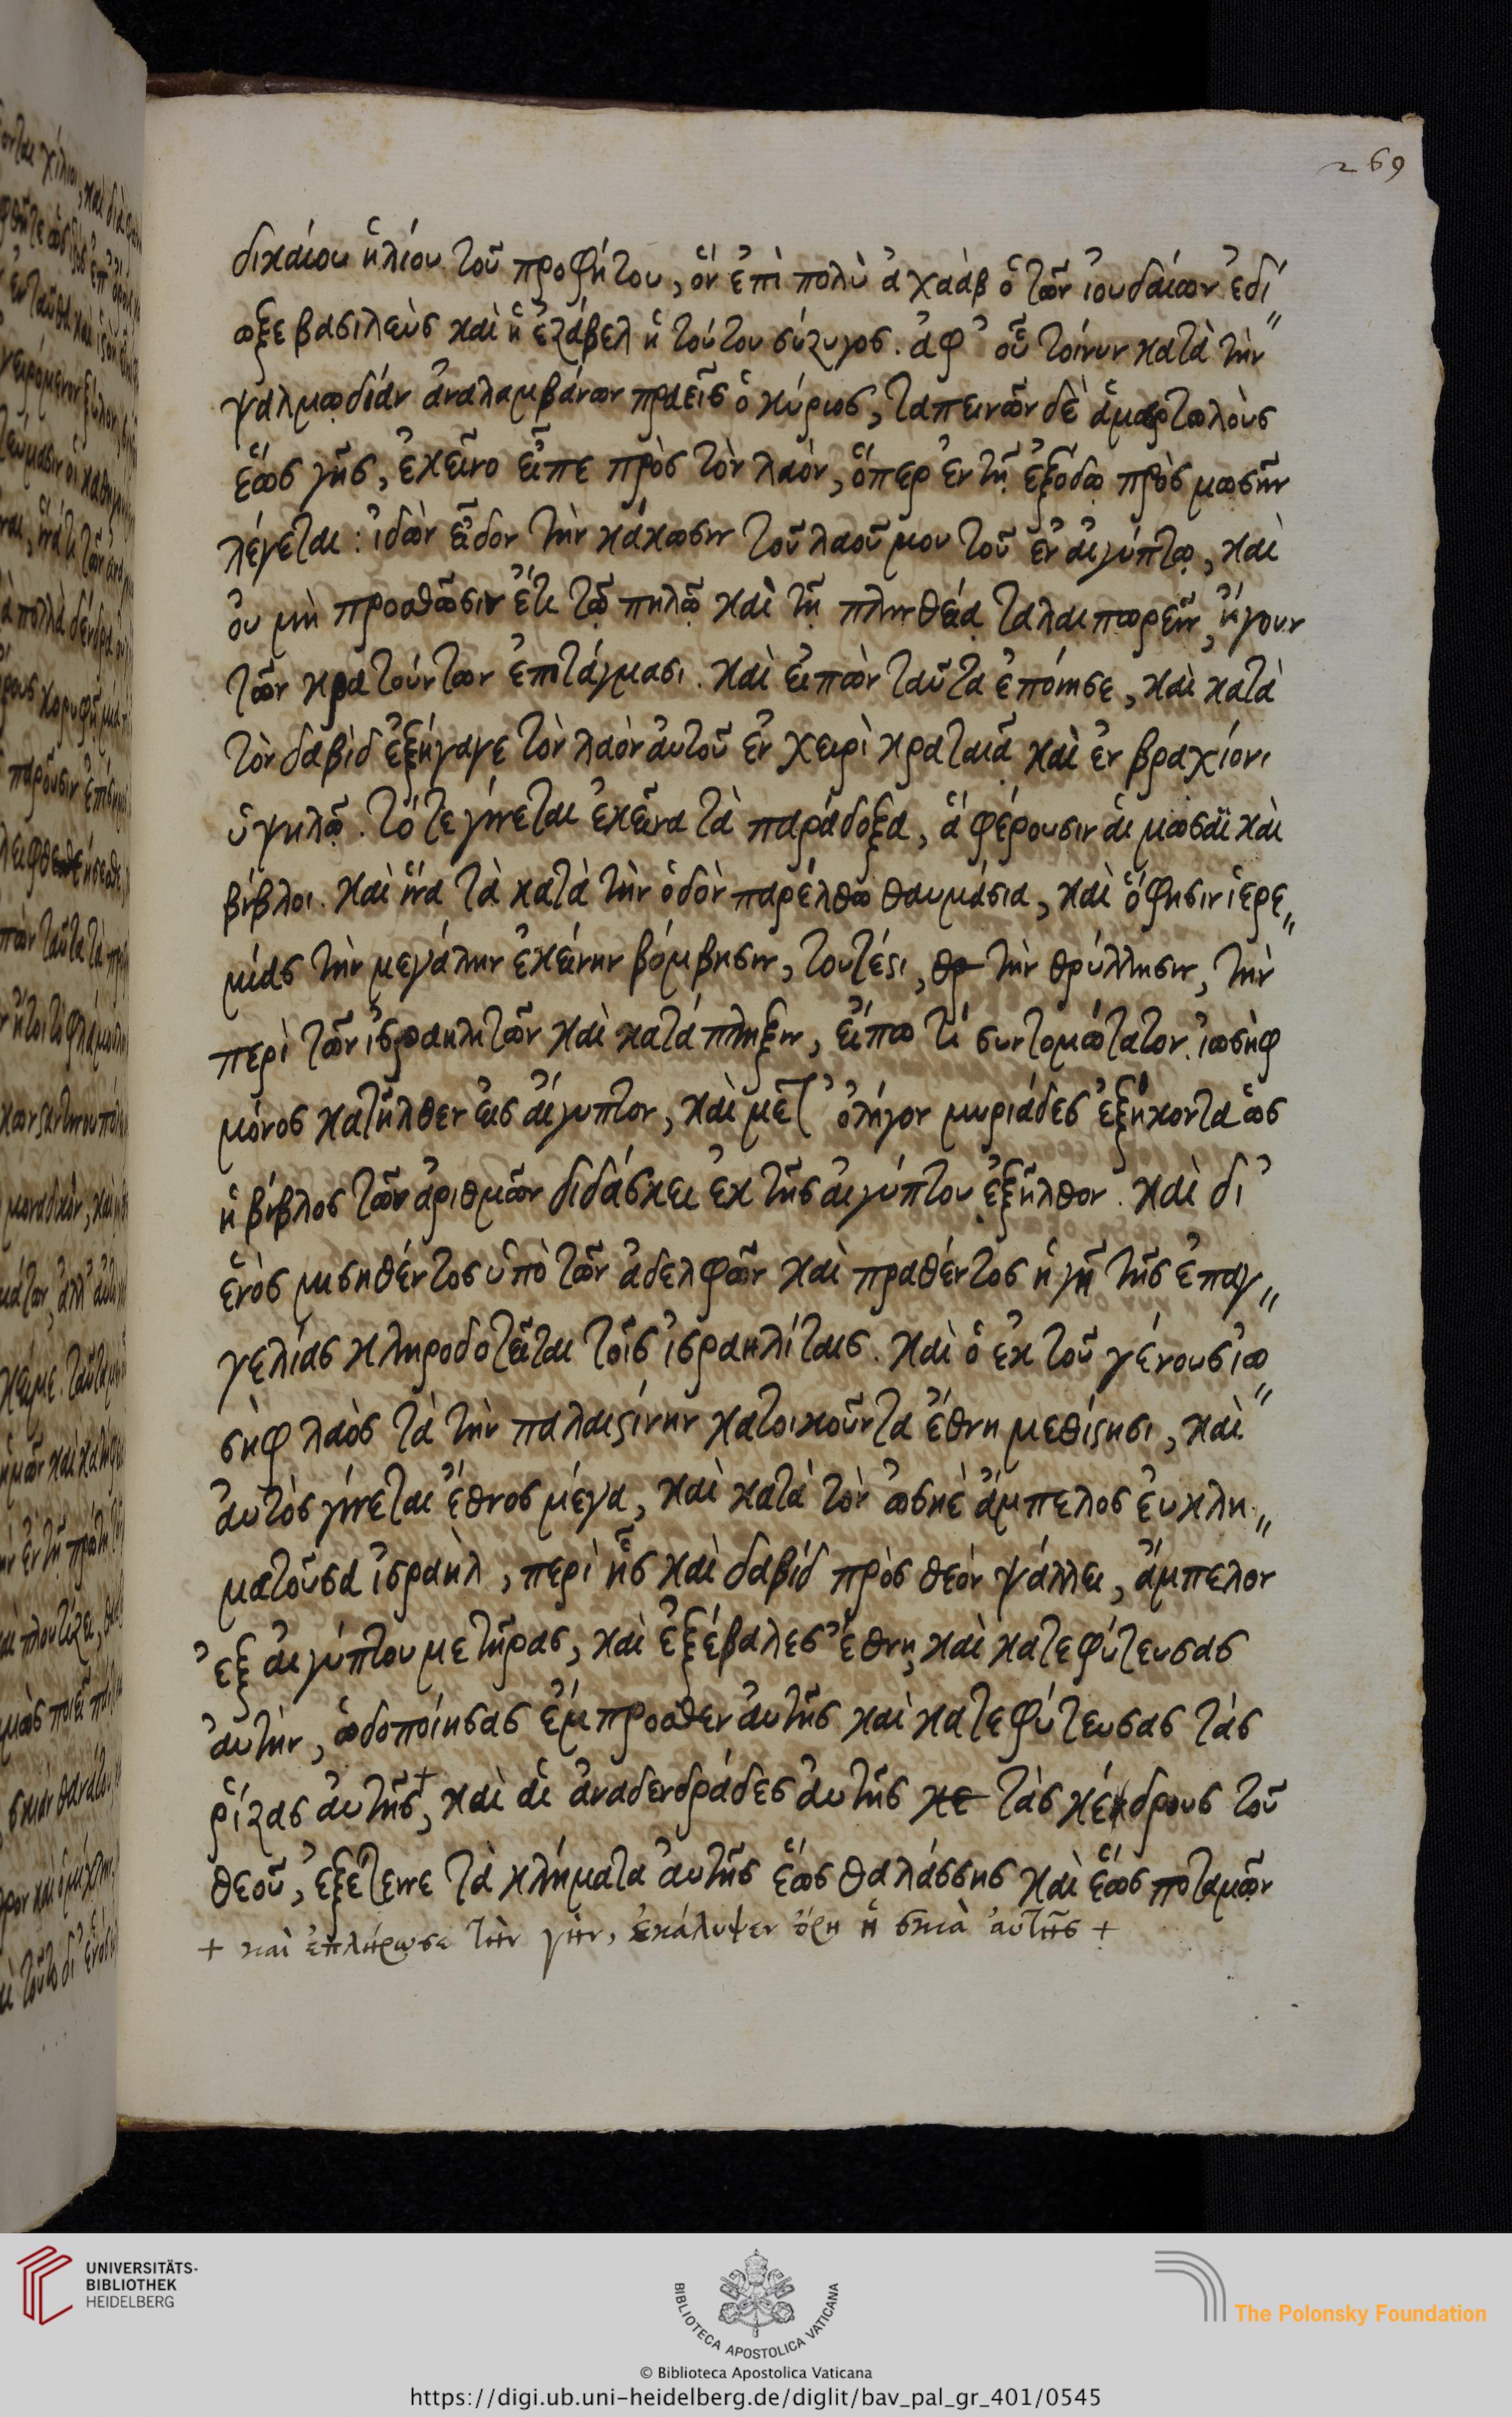 269
δικαίου ἡλίου τοῦ προφήτου, ὃν ἐπὶ πολὺ ἀχαὰβ ὁ τῶν ἰουδαίων ἐδί„
ωξε βασιλεὺς καὶ ἡ ἐζάβελ ἡ τούτου σύζυγος. ἀφ' οὗ τοίνυν κατὰ τὴν
ψαλμωδίαν ἀναλαμβάνων πραεῖς ὁ κύριος, ταπεινῶν δὲ ἁμαρτωλοὺς
ἕως γῆς, ἐκεῖνο εἶπε πρὸς τὸν λαὸν, ὅπερ ἐν τῇ ἐξόδω πρὸς μωσῆν
λέγεται: ἰδὼν εἶδον τὴν κάκωσιν τοῦ λαοῦ μου τοῦ ἐν αἰγύπτῳ, καὶ
οὐ μὴ προσθῶσιν ἔτι τῷ πηλῷ καὶ τῇ πλινθείᾳ ταλαιπωρεῖν, ἤγουν
τῶν κρατούντων ἐπιτάγμασι. καὶ εἰπὼν ταῦτα ἐποίησε, καὶ κατὰ
τὸν δαβὶδ ἐξήγαγε τὸν λαὸν αὐτοῦ ἐν χειρὶ κραταιᾷ καὶ ἐν βραχίονι
ὑψηλῷ. τότε γίνεται ἐκεῖνα τὰ παράδοξα, ἃ φέρουσιν αἱ μωσαϊκαὶ
βίβλοι. καὶ ἵνα τὰ κατὰ τὴν ὁδὸν παρέλθω θαυμάσια, καὶ ὅ φησιν ἱερε„
μίας τὴν μεγάλην ἐκείνην βόμβησιν, τουτέστι, θρ τὴν θρύλλησιν, τὴν
περὶ τῶν ἰσραηλιτῶν καὶ κατάπληξιν, εἴπω τί συντομώτατον. ἰωσὴφ
μόνος κατῆλθεν εἰς αἴγυπτον, καὶ μετ' ὀλίγον μυριάδες ἑξήκοντα ὡς
ἡ βίβλος τῶν ἀριθμῶν διδάσκει ἐκ τῆς αἰγύπτου ἐξῆλθον. καὶ δι'
ἑνὸς μισηθέντος ὑπὸ τῶν ἀδελφῶν καὶ πραθέντος ἡ γῆ τῆς ἐπαγ„
γελίας κληροδοτεῖται τοῖς ἰσραηλίταις. καὶ ὁ ἐκ τοῦ γένους ἰω„
σὴφ λαὸς τὰ τὴν παλαιστίνην κατοικοῦντα ἔθνη μεθίστησι, καὶ
αὐτὸς γίνεται ἔθνος μέγα, καὶ κατὰ τὸν ὠσηὲ ἄμπελος εὐκλη„
ματοῦσα ἰσραὴλ, περὶ ἧς καὶ δαβὶδ πρὸς θεὸν ψάλλει, ἄμπελον
ἐξ αἰγύπτου μετῆρας, καὶ ἐξέβαλες ἔθνη, καὶ κατεφύτευσας
αὐτὴν, ὡδοποίησας ἔμπροσθεν αὐτῆς καὶ κατεφύτευσας τὰς
ῥίζας αὐτῆς+, καὶ αἱ ἀναδενδράδες αὐτῆς κε τὰς κέδρους τοῦ
θεοῦ, ἐξέτεινε τὰ κλήματα αὐτῆς ἕως θαλάσσης καὶ ἕως ποταμῶν
+ καὶ ἐπλήρωσε τὴν γῆν, ἐκάλυψεν ὄρη ἡ σκιὰ αὐτῆς +
UNIVERSITÄTS-
BIBLIOTHEK
HEIDELBERG
BIBLIOTECA APOSTOLICA VATICANA
The Polonsky Foundation
© Biblioteca Apostolica Vaticana
https://digi.ub.uni-heidelberg.de/diglit/bav_pal_gr_401/0545